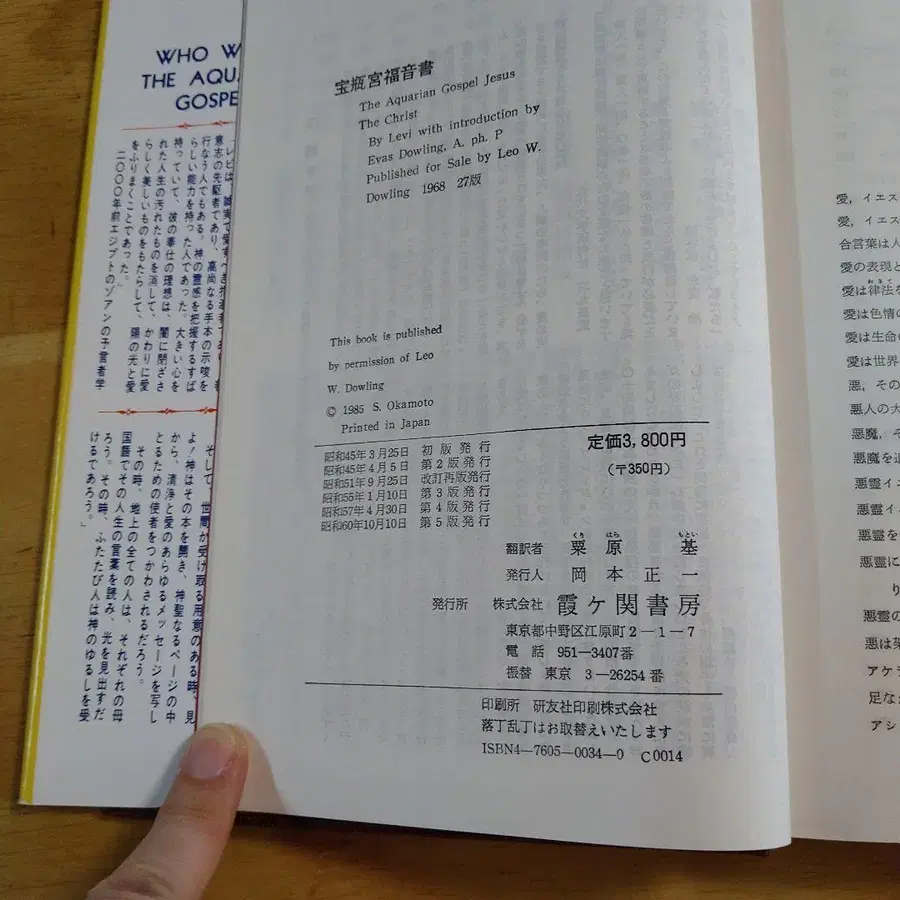 WHO W
THE AQUA
GOSPE
行なう人でもある。神の霊感を把握するすば
らしい能力を持った人であった。大きい心を
持っていて、彼の奉仕の理想は、闇に閉ざさ
れた人生の汚れたものを消して、かわりに愛
らしく美しいものをもたらして、陽の光と愛
をふりまくことであった。
二〇〇〇年前エジプトのゾアンの予言者学
そして、世間が受け取る用意のある時、見
よ!神はその本を開き、神聖なるページの中
から、清浄と愛のあらゆるメッセージを写し
とるための使者をつかわされるだろう。
その時、地上の全ての人は、それぞれの母
国語でその人生の言葉を読み、光を見出すだ
ろう。その時、ふたたび人は神のゆるしを受
けるであろう。」
宝瓶宮福音書
The Aquarian Gospel Jesus
The Christ
By Levi with introduction by
Evas Dowling, A. ph. P
Published for Sale by Leo W.
Dowling 1968 27版
This book is published
by permission of Leo
W. Dowling
© 1985 S. Okamoto
Printed in Japan
定価3,800円
(〒350円)
昭和45年3月25日 初版発行
昭和45年4月5日 第2版発行
昭和51年9月25日 改訂再版発行
昭和55年1月10日 第3版発行
昭和57年4月30日 第4版発行
昭和60年10月10日 第5版発行
くり はら もとい
翻訳者 栗原 基
発行人 岡本正一
発行所 株式会社 霞ケ関書房
東京都中野区江原町2-1-7
電話 951-3407番
振替 東京 3-26254番
印刷所 研友社印刷株式会社
落丁乱丁はお取替えいたします
ISBN4-7605-0034-0 C0014
愛, イエス
愛, イエス
合言葉は人
愛の表現と
愛は律法を
愛は色情の
愛は生命の
愛は世界
悪, その
悪人の大
悪魔, そ
悪魔を追
悪霊イエ
悪霊イエ
悪霊を
悪霊に
り
悪霊の
悪は架
アケラ
足な
アシ